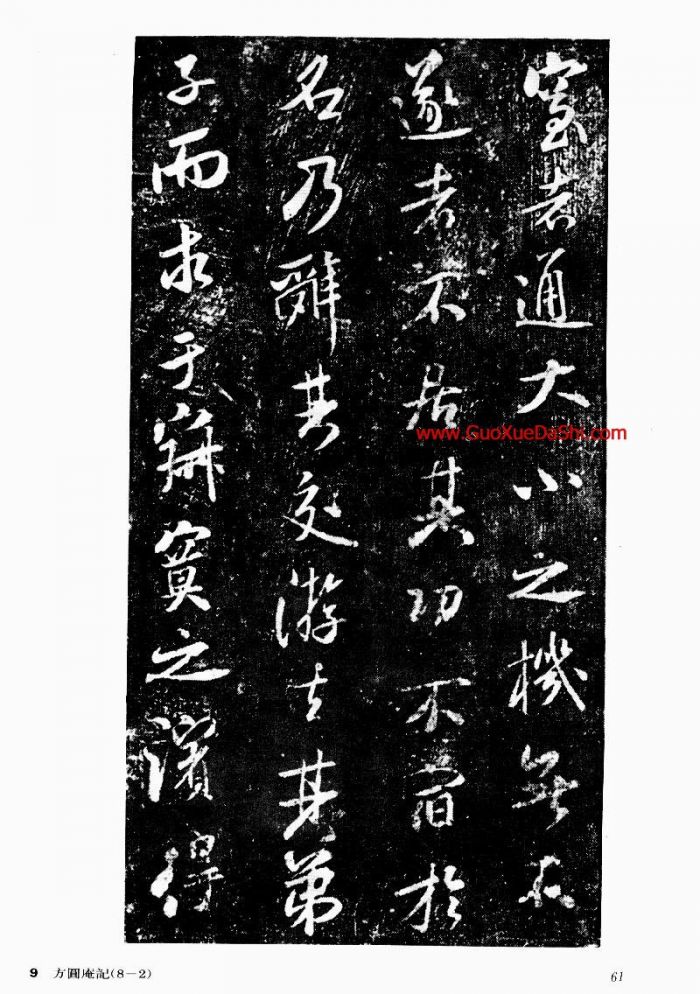 窒者通大小之機無不
遂者不居其功不宿於
名乃辭其交游去其弟
子而求于寂寞之濱得
www.GuoXueDaShi.com
9 方圓庵記(8－2)
61